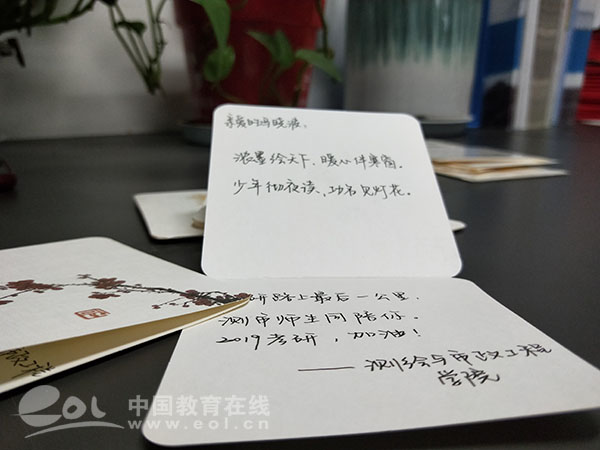 亲爱的冉晓淮：
浓墨绘天下，暖心伴寒窗。
少年彻夜读，功名见灯花。
研路上最后一公里，
测市师生同陪你。
2019考研，加油！
——测绘与市政工程
学院
eol 中国教育在线
www.eol.cn